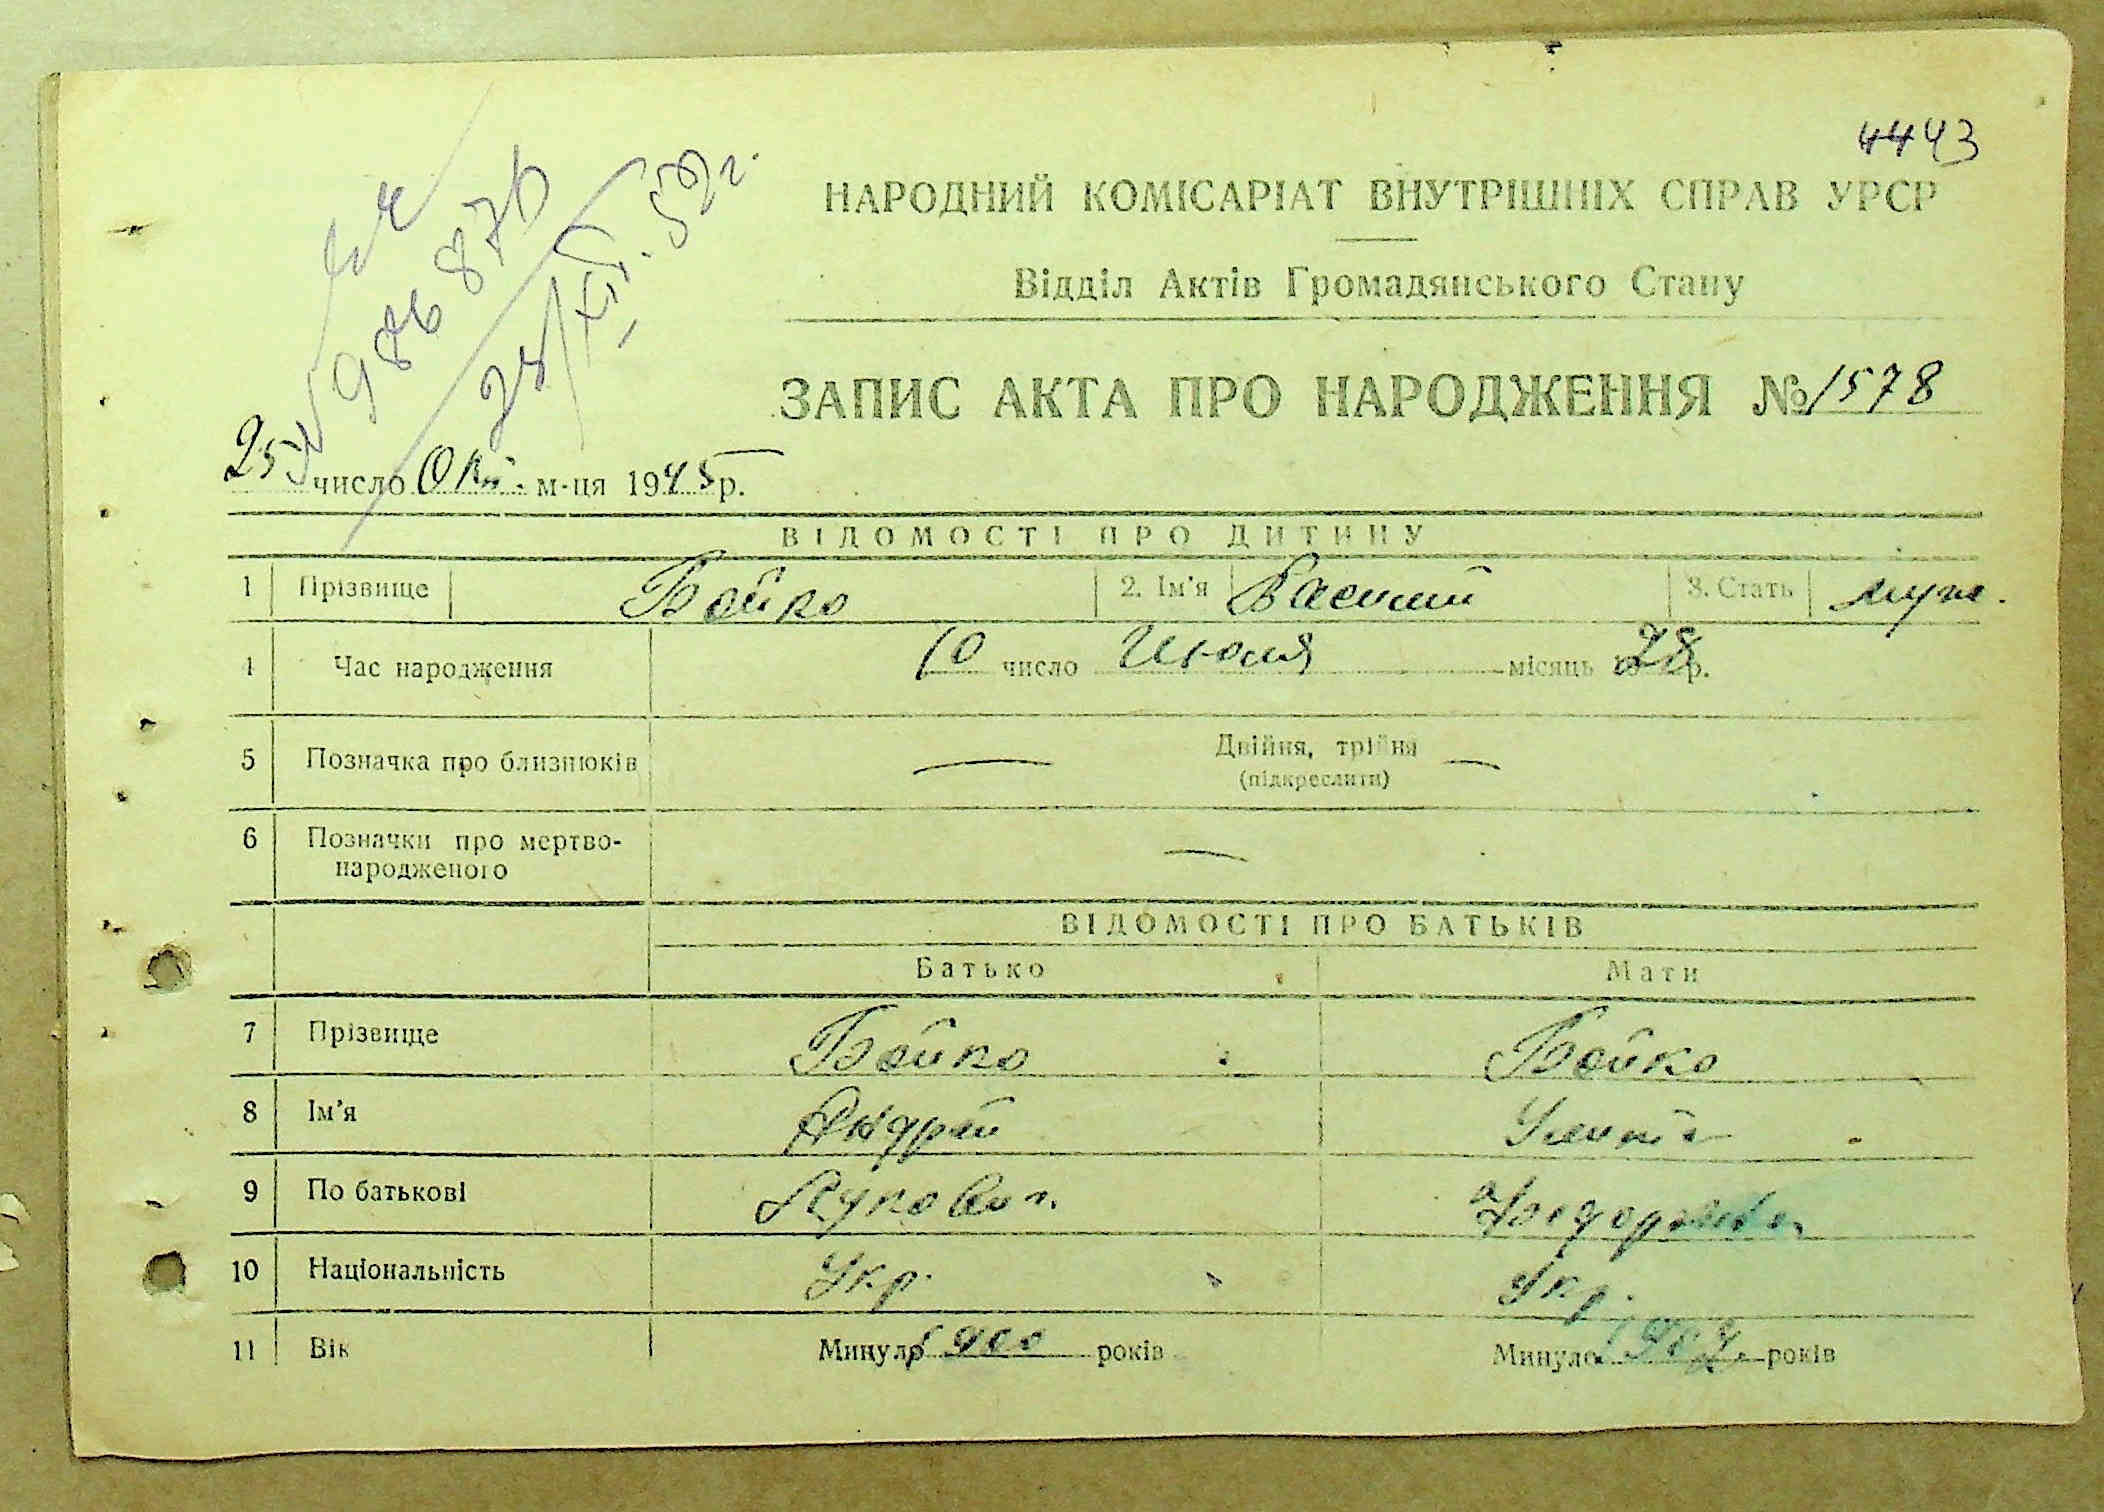 4443
НАРОДНИЙ КОМІСАРІАТ ВНУТРІШНІХ СПРАВ УРСР
Відділ Актів Громадянського Стану
ЗАПИС АКТА ПРО НАРОДЖЕННЯ № 1578
25 число Окт. м-ця 1945 р.
ВІДОМОСТІ ПРО ДИТИНУ
1 Прізвище Бойко 2. Ім'я Василий 3. Стать муж.
4 Час народження 10 число Июля місяць 28 р.
5 Позначка про близнюків — Двійня, трійня —
(підкреслити)
6 Позначки про мертво-
народженого —
ВІДОМОСТІ ПРО БАТЬКІВ
Батько Мати
7 Прізвище Бойко Бойко
8 Ім'я Андрей
9 По батькові Лукович Федоровна
10 Національність Укр. Укр.
11 Вік Минуло 1900 років Минуло років